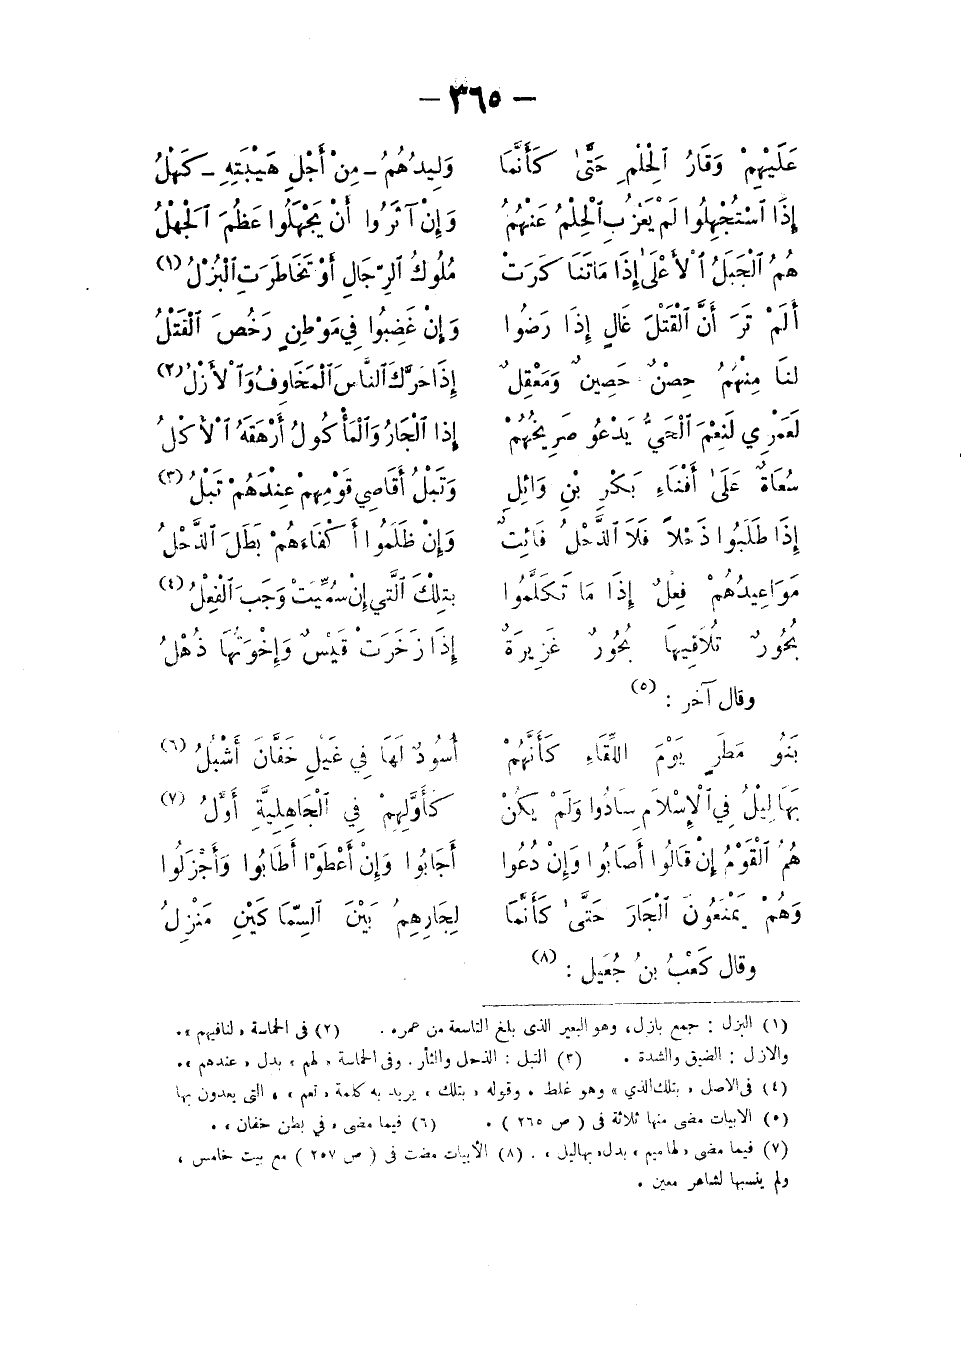 — ٣٦٥ —
عَلَيْهِمْ وَقَارُ الْحِلْمِ حَتَّى كَأَنَّمَا وَلِيدُهُمُ - مِنْ أَجْلِ هَيْبَتِهِ - كَهْلُ
إِذَا اسْتُجْهِلُوا لَمْ يَعْزُبِ الْحِلْمُ عَنْهُمُ وَإِنْ آثَرُوا أَنْ يَجْهَلُوا عَظُمَ الْجَهْلُ
هُمُ الْجَبَلُ الْأَعْلَى إِذَا مَا تَنَاكَرَتْ مُلُوكُ الرِّجَالِ أَوْ تَخَاطَرَتِ الْبُزْلُ (١)
أَلَمْ تَرَ أَنَّ الْقَتْلَ غَالٍ إِذَا رَضُوا وَإِنْ غَضِبُوا فِي مَوْطِنٍ رَخُصَ الْقَتْلُ
لَنَا مِنْهُمُ حِصْنٌ حَصِينٌ وَمَعْقِلٌ إِذَا حَرَّكَ النَّاسَ الْمَخَاوِفُ وَالْأَزْلُ (٢)
لَعَمْرِي لَنِعْمَ الْحَيُّ يَدْعُو صَرِيخُهُمْ إِذَا الْجَارُ وَالْمَأْكُولُ أَرْهَقَهُ الْأَكْلُ
سُعَاةٌ عَلَى أَفْنَاءِ بَكْرِ بْنِ وَائِلٍ وَتَبْلُ أَقَاصِي قَوْمِهِمْ عِنْدَهُمْ تَبْلُ (٣)
إِذَا طَلَبُوا ذَحْلاً فَلَا الذَّحْلُ فَائِتٌ وَإِنْ ظَلَمُوا أَكْفَاءَهُمْ بَطَلَ الذَّحْلُ
مَوَاعِيدُهُمْ فِعْلٌ إِذَا مَا تَكَلَّمُوا بِتِلْكَ الَّتِي إِنْ سُمِّيَتْ وَجَبَ الْفِعْلُ (٤)
بُحُورٌ تُلَاقِيهَا بُحُورٌ غَزِيرَةٌ إِذَا زَخَرَتْ قَيْسٌ وَإِخْوَتُهَا ذُهْلُ
وقال آخر : (٥)
بَنُو مَطَرٍ يَوْمَ اللِّقَاءِ كَأَنَّهُمْ أُسُودٌ لَهَا فِي غِيلِ خَفَّانَ أَشْبُلُ (٦)
بَهَالِيلُ فِي الْإِسْلَامِ سَادُوا وَلَمْ يَكُنْ كَأَوَّلِهِمْ فِي الْجَاهِلِيَّةِ أَوَّلُ (٧)
هُمُ الْقَوْمُ إِنْ قَالُوا أَصَابُوا وَإِنْ دُعُوا أَجَابُوا وَإِنْ أَعْطَوْا أَطَابُوا وَأَجْزَلُوا
وَهُمْ يَمْنَعُونَ الْجَارَ حَتَّى كَأَنَّمَا لِجَارِهِمُ بَيْنَ السِّمَاكَيْنِ مَنْزِلُ
وقال كَعْبُ بنُ جُعَيل : (٨)
(١) البزل : جمع بازل، وهو البعير الذى بلغ التاسعة من عمره . (٢) فى الحماسة « لنافيهم » .
والازل : الضيق والشدة . (٣) التبل : الذحل والثأر . وفى الحماسة « لهم » بدل « عندهم » .
(٤) فى الاصل « بتلك الذي » وهو غلط . وقوله « بتلك » يريد به كلمة « نعم » ، التى يعدون بها
(٥) الابيات مضى منها ثلاثة فى ( ص ٢٦٥ ) . (٦) فيما مضى « في بطن خفان » .
(٧) فيما مضى « لهاميم » بدل « بهاليل » . (٨) الأبيات مضت فى ( ص ٢٥٧ ) مع بيت خامس ،
ولم ينسبها لشاعر معين .